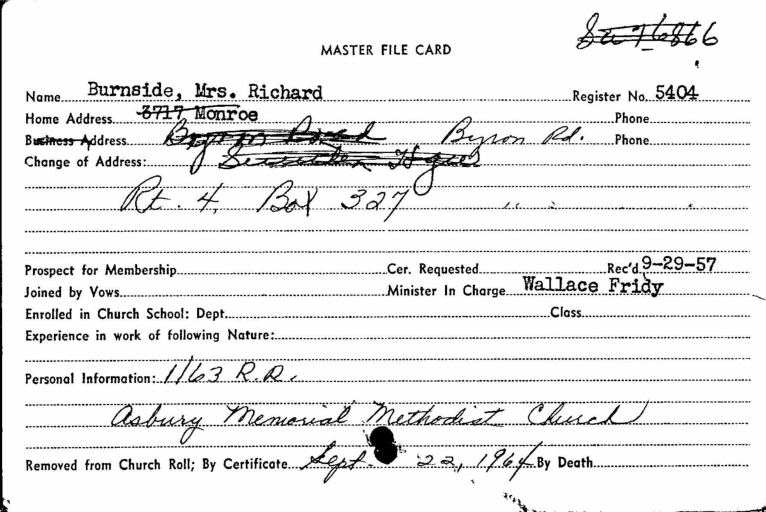 MASTER FILE CARD
Name Burnside, Mrs. Richard Register No. 5404
Home Address 3717 Monroe Phone
Business Address Byron Road Byron Rd. Phone
Change of Address:
Rt. 4, Box 327
Prospect for Membership Cer. Requested Rec'd 9-29-57
Joined by Vows Minister In Charge Wallace Fridy
Enrolled in Church School: Dept. Class
Experience in work of following Nature:
Personal Information: 1/63 R.R.
Asbury Memorial Methodist Church
Removed from Church Roll; By Certificate Sept. 22, 1964 By Death